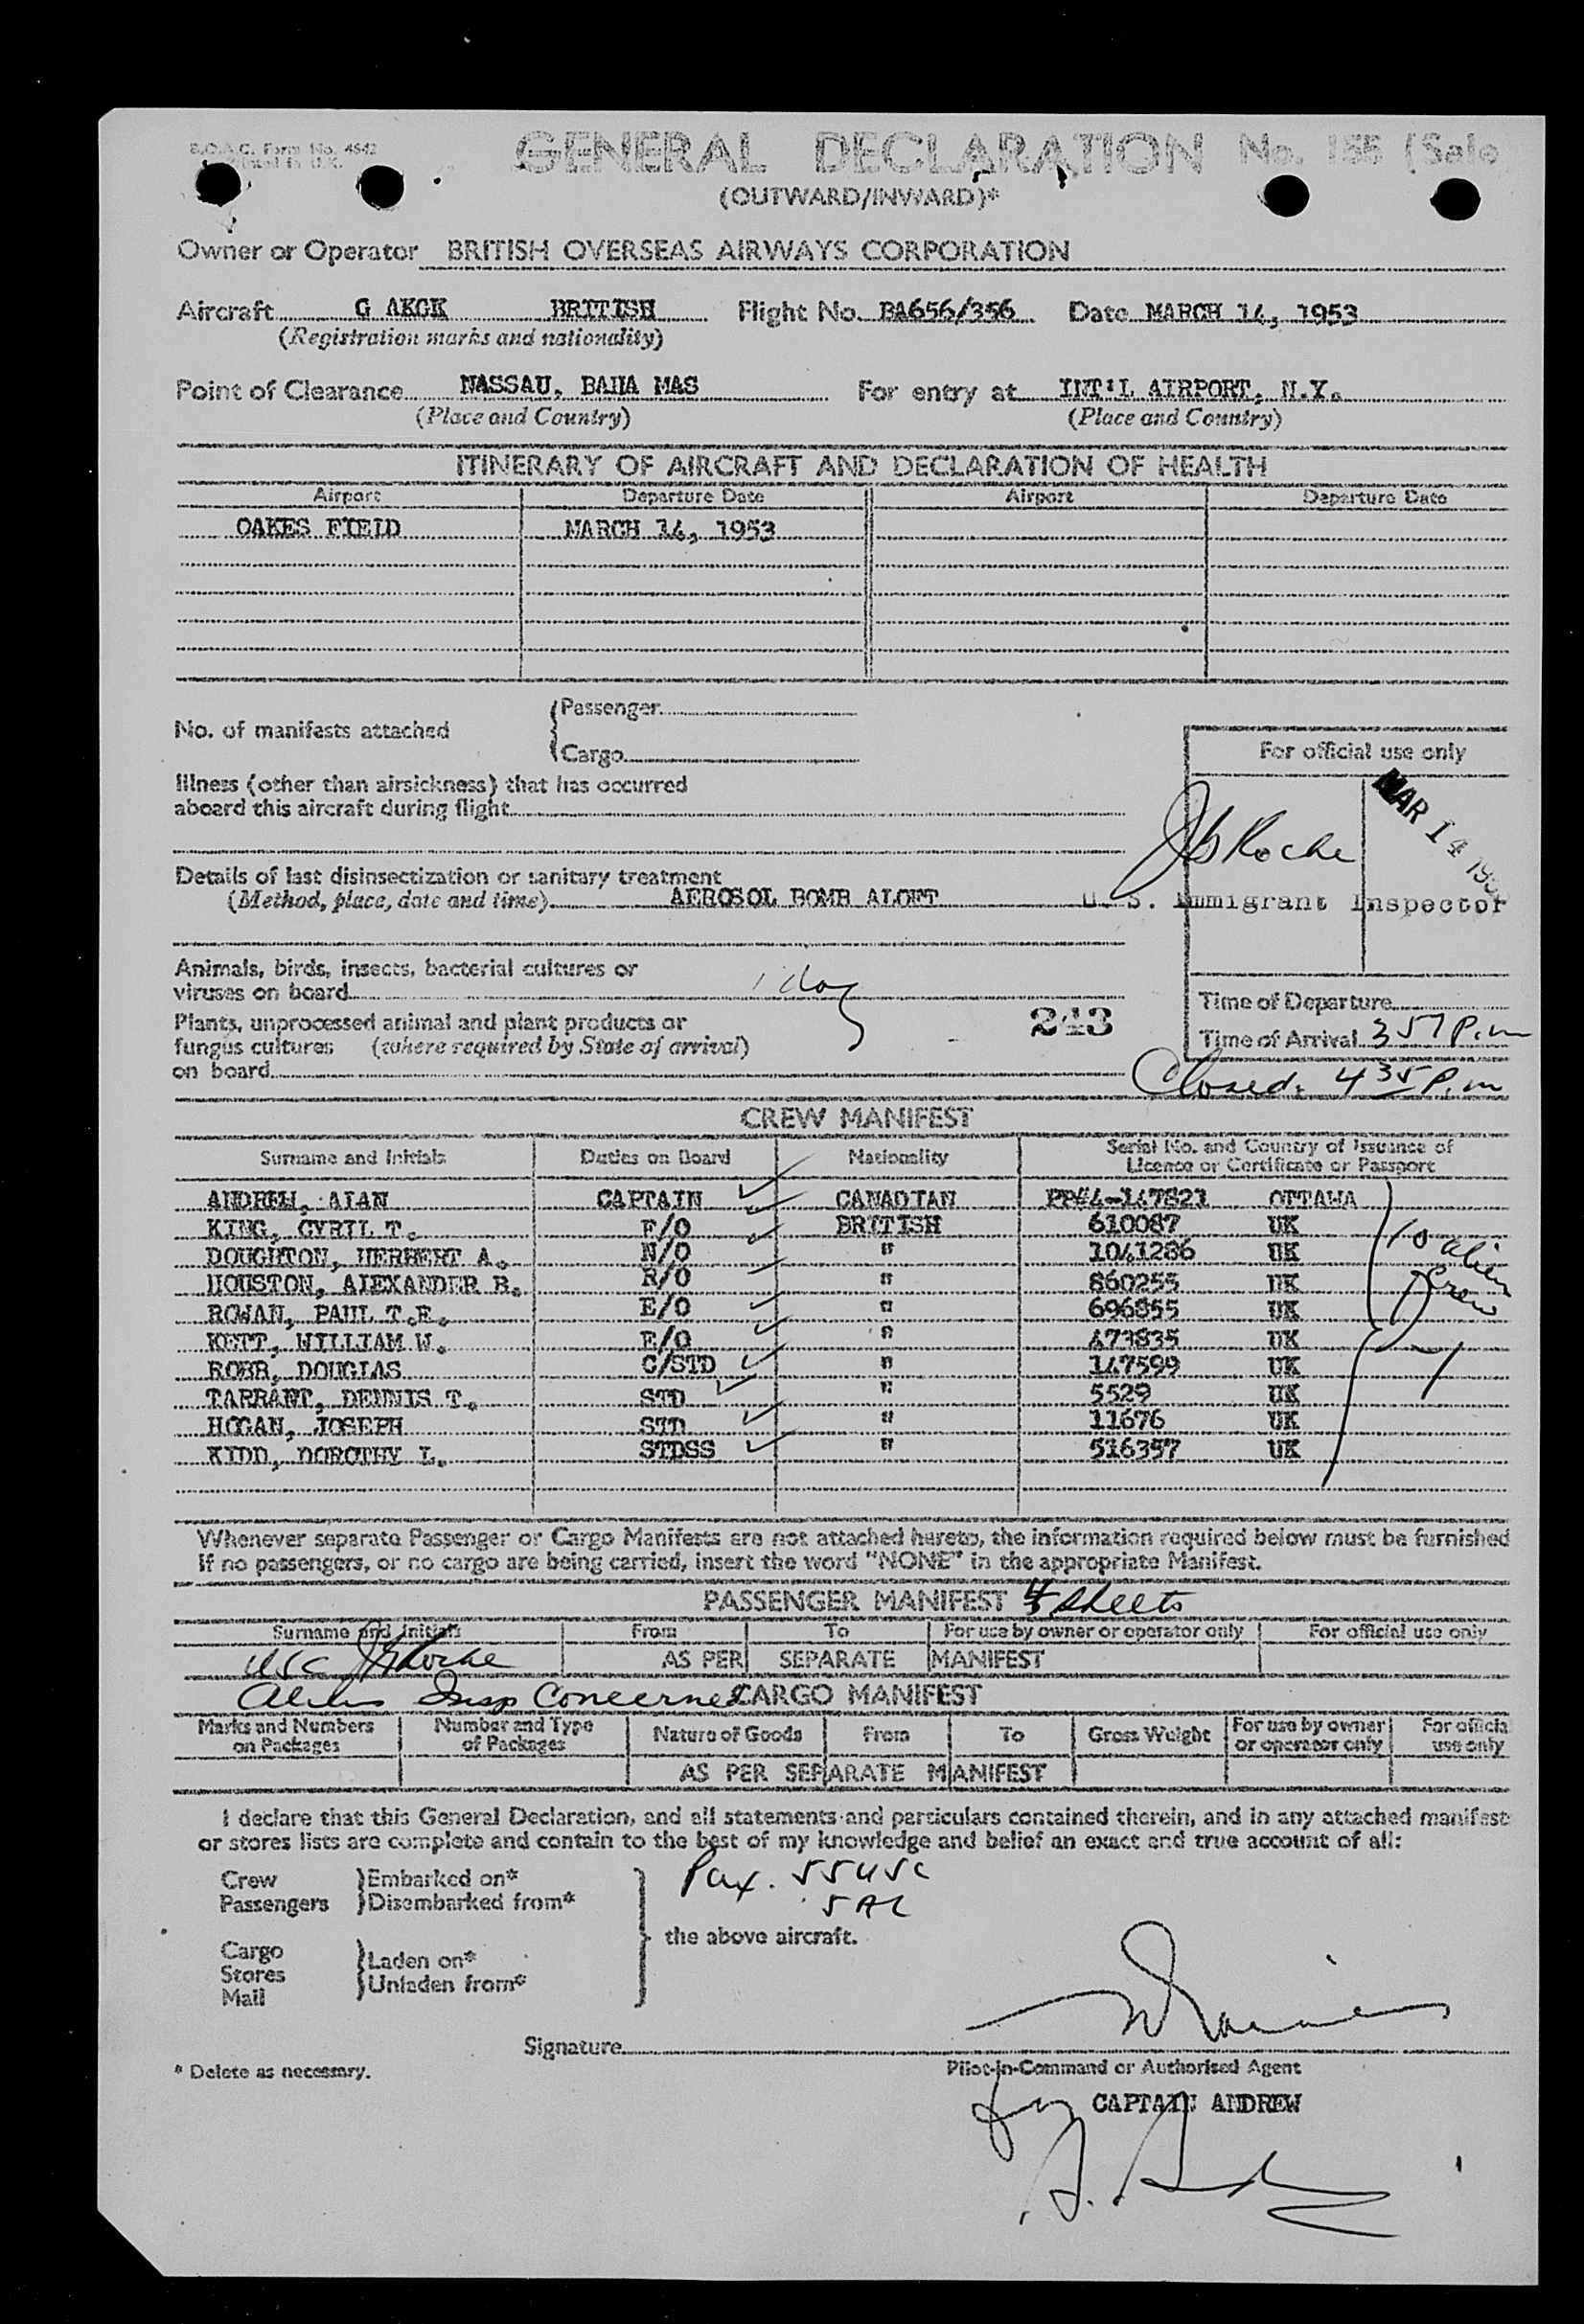 B.O.A.C. Form No. 4542
Printed in U.K.
GENERAL DECLARATION No. 155 (Sale
(OUTWARD/INWARD)*
Owner or Operator BRITISH OVERSEAS AIRWAYS CORPORATION
Aircraft G AKGK BRITISH Flight No. BA656/356 Date MARCH 14, 1953
(Registration marks and nationality)
Point of Clearance NASSAU, BAHA MAS For entry at INT'L AIRPORT, N.Y.
(Place and Country) (Place and Country)
ITINERARY OF AIRCRAFT AND DECLARATION OF HEALTH
Airport Departure Date Airport Departure Date
OAKES FIELD MARCH 14, 1953
No. of manifests attached
Passenger
Cargo
For official use only
Illness (other than airsickness) that has occurred
aboard this aircraft during flight
MAR 14 195
Roche
Details of last disinsectization or sanitary treatment
(Method, place, date and time) AEROSOL BOMB ALOFT
U. S. Immigrant Inspector
Animals, birds, insects, bacterial cultures or
viruses on board 1 dog
Time of Departure
Plants, unprocessed animal and plant products or
fungus cultures (where required by State of arrival)
on board
243
Time of Arrival 357 P.m
Closed: 435 P.m
CREW MANIFEST
Surname and Initials Duties on Board Nationality Serial No. and Country of Issuance of
Licence or Certificate or Passport
ANDREW, ALAN CAPTAIN CANADIAN PP#4-147821 OTTAWA
KING, CYRIL T. F/O BRITISH 610087 UK
DOUGHTON, HERBERT A. N/O " 1041286 UK
HOUSTON, ALEXANDER B. R/O " 860255 UK
ROWAN, PAUL T.E. E/O " 696855 UK
KETT, WILLIAM W. E/O " 473835 UK
ROBB, DOUGLAS C/STD " 147599 UK
TARRANT, DENNIS T. STD " 5529 UK
HOGAN, JOSEPH STD " 11676 UK
KIDD, DOROTHY L. STDSS " 516357 UK
10 alien
Crew
Whenever separate Passenger or Cargo Manifests are not attached hereto, the information required below must be furnished
If no passengers, or no cargo are being carried, insert the word "NONE" in the appropriate Manifest.
PASSENGER MANIFEST sheets
Surname and Initials From To For use by owner or operator only For official use only
USC Roche AS PER SEPARATE MANIFEST
Aliens Insp Concerned
CARGO MANIFEST
Marks and Numbers
on Packages
Number and Type
of Packages
Nature of Goods From To Gross Weight
For use by owner
or operator only
For officia
use only
AS PER SEPARATE MANIFEST
I declare that this General Declaration, and all statements and particulars contained therein, and in any attached manifest
or stores lists are complete and contain to the best of my knowledge and belief an exact and true account of all:
Crew
Passengers
Embarked on*
Disembarked from*
Pax. 55 USC
5 AL
the above aircraft.
Cargo
Stores
Mail
Laden on*
Unladen from*
Signature
* Delete as necessary.
Pilot-in-Command or Authorised Agent
for CAPTAIN ANDREW